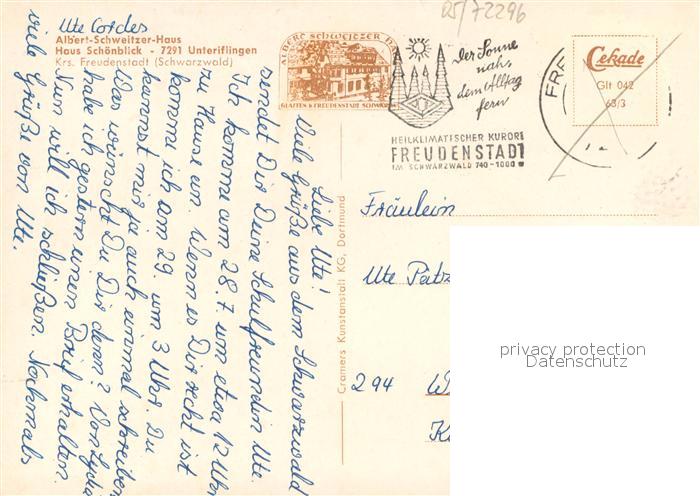 05/72296
Ute Cordes
Albert-Schweitzer-Haus
Haus Schönblick - 7291 Unteriflingen
Krs. Freudenstadt (Schwarzwald)
ALBERT SCHWEITZER H
GLATTEN b FREUDENSTADT SCHWARZW
Der Sonne
nah
dem Alltag
fern
HEILKLIMATISCHER KURORT
FREUDENSTADT
IM SCHWARZWALD 740-1000 m
FRE
Cekade
Glt 042
63/3
Liebe Ute!
Viele Grüße aus dem Schwarzwald
sendet Dir Deine Schulfreundin Ute.
Ich komme am 28.7. um etwa 12 Uhr
zu Hause an. Wenn es Dir recht ist
komme ich am 29. um 3 Uhr. Du
kannst mir ja auch einmal schreiben.
Was wünscht Du Dir denn? Von Lydia
habe ich gestern einen Brief erhalten.
Nun will ich schließen. Nochmals
viele Grüße von Ute.
Cramers Kunstanstalt KG, Dortmund
Fräulein
Ute Patz
294 W
K
privacy protection
Datenschutz